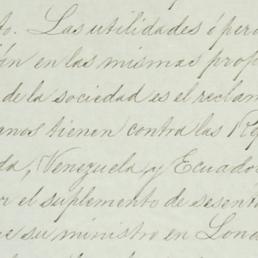 to. Las utilidades ó pérd
ón en las mismas prop
de la sociedad es el reclam
anos tienen contra las Rep
da, Venezuela, y Ecuador
el suplemento de sesent
e su ministro en Lond